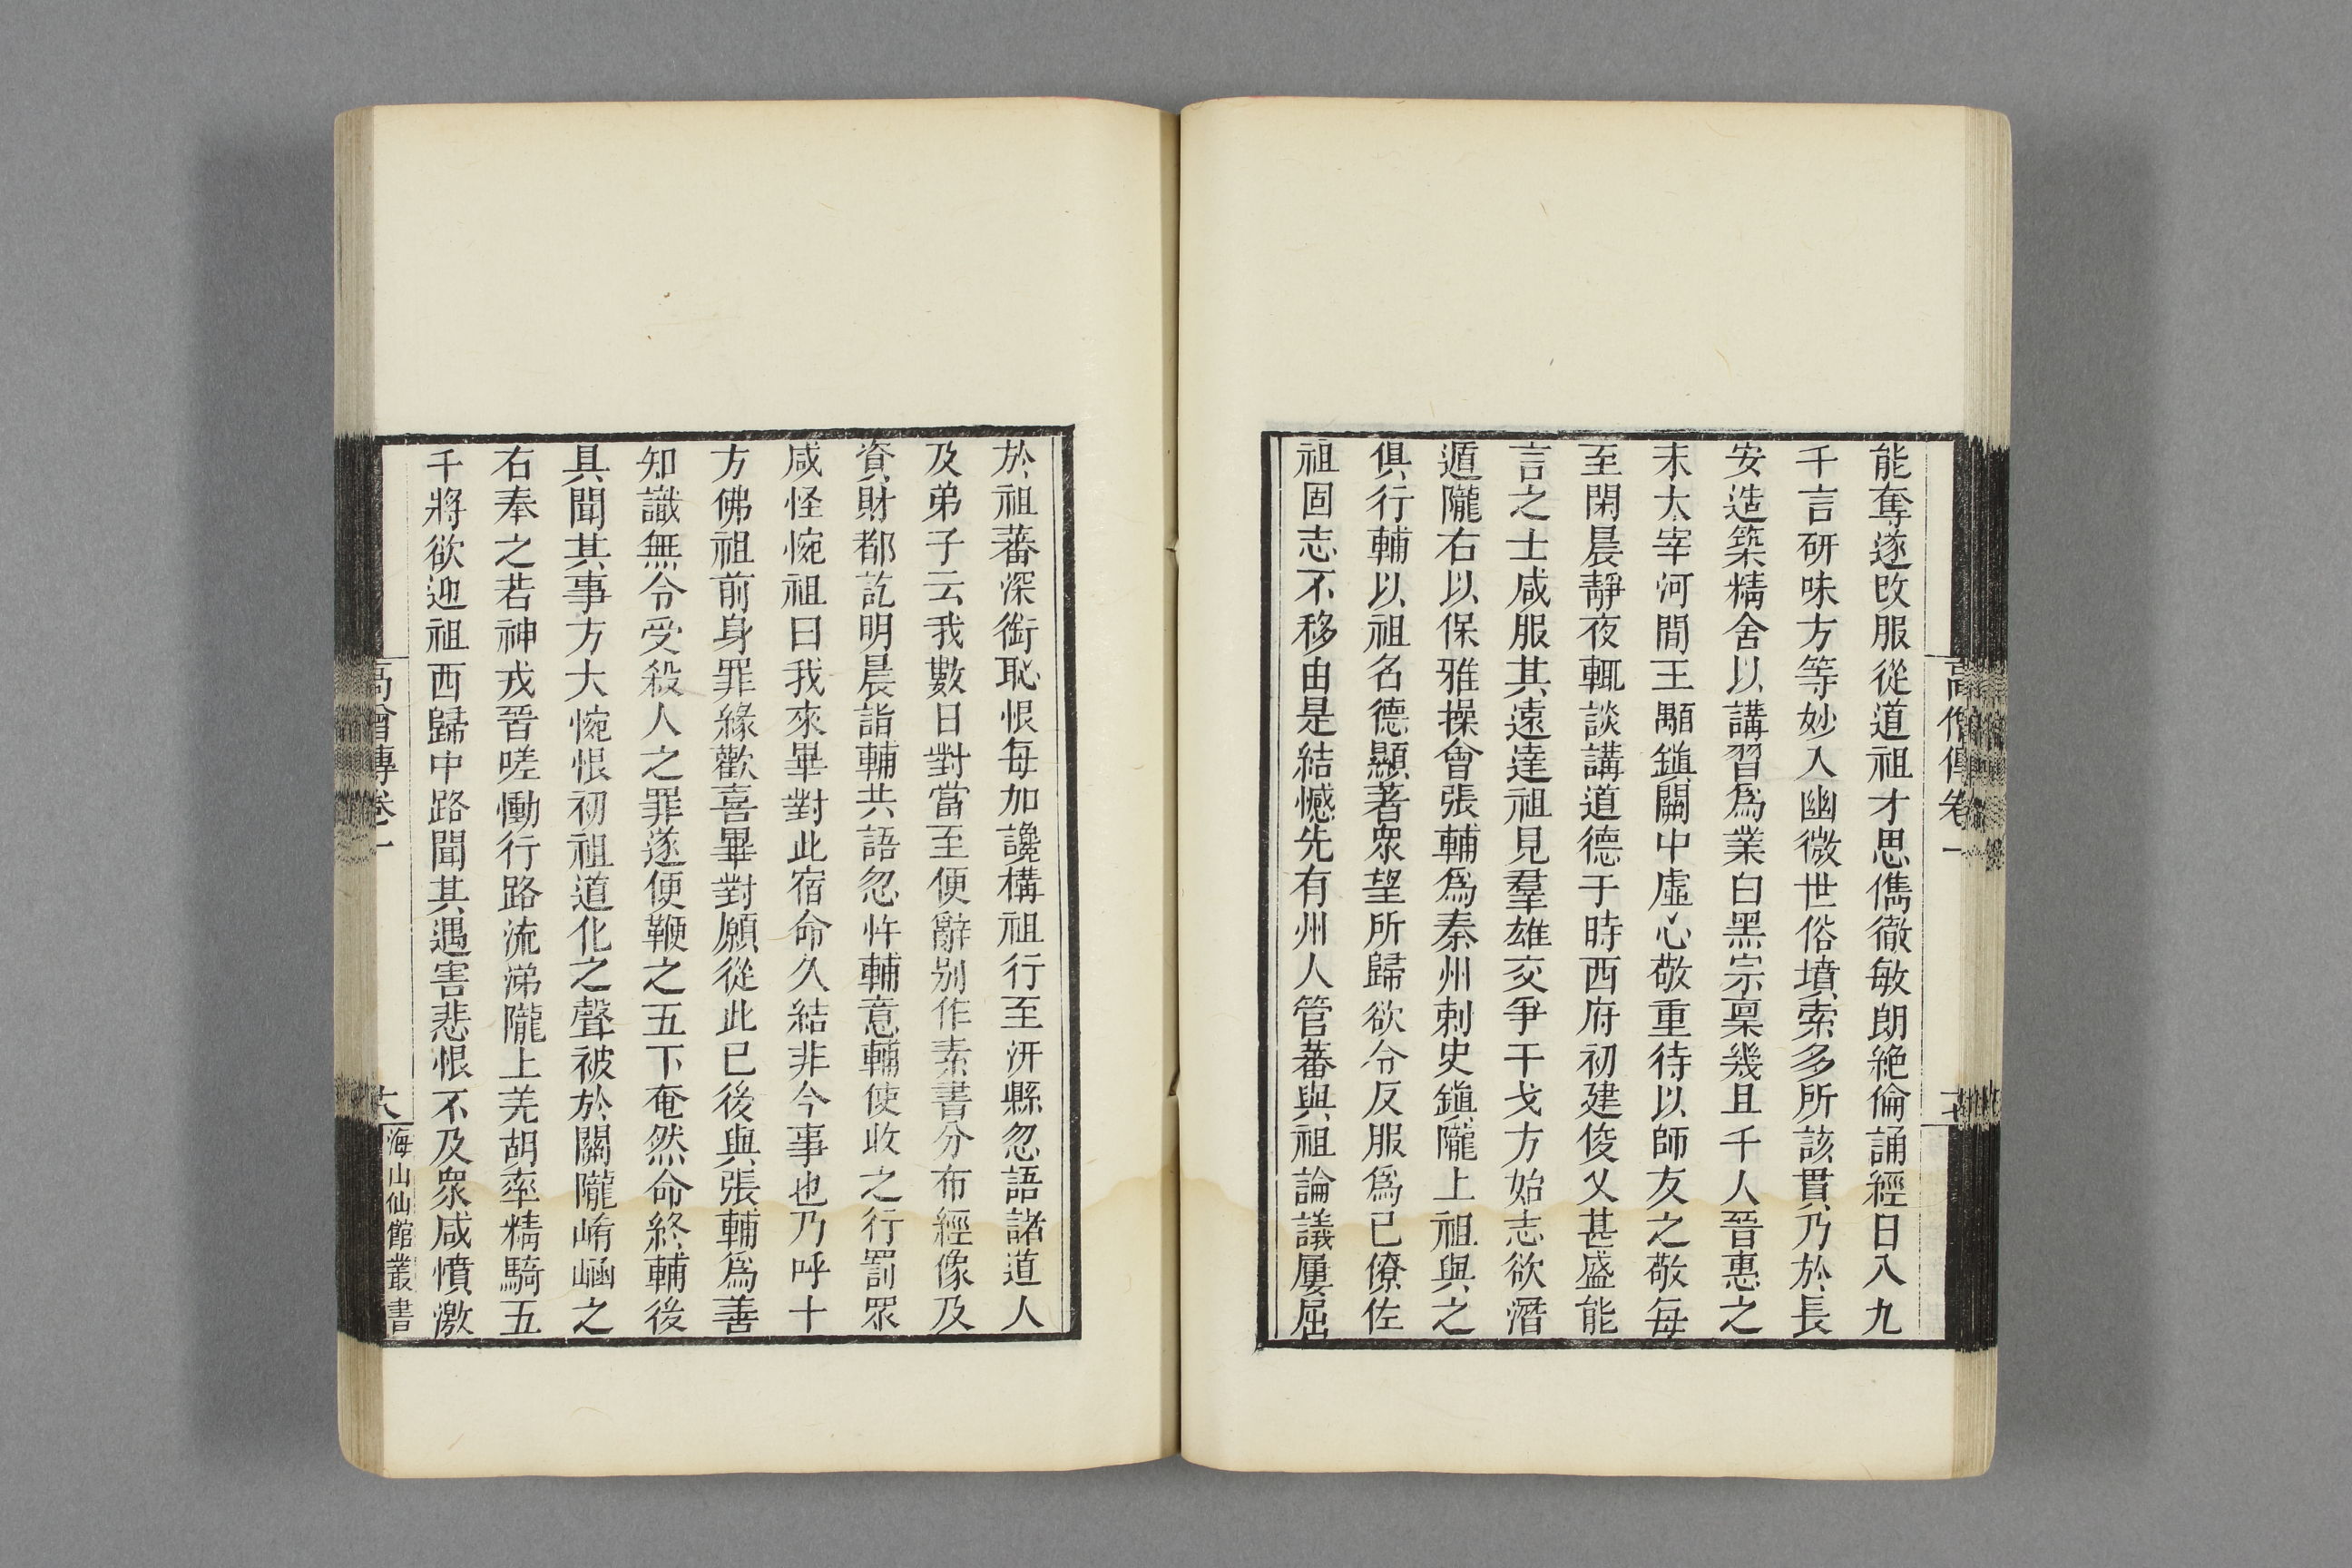 能奪遂改服從道祖才思儁徹敏朗絶倫誦經日八九
千言研味方等妙入幽微世俗墳索多所該貫乃於長
安造築精舍以講習爲業白黑宗稟幾且千人晉惠之
末大宰河間王顒鎮關中虛心敬重待以師友之敬每
至閑晨靜夜輒談講道德于時西府初建俊乂甚盛能
言之士咸服其遠達祖見羣雄交爭干戈方始志欲潛
遁隴右以保雅操會張輔爲秦州刺史鎮隴上祖與之
俱行輔以祖名德顯著衆望所歸欲令反服爲已僚佐
祖固志不移由是結憾先有州人管蕃與祖論議屢屈
於祖蕃深銜恥恨每加讒構祖行至汧縣忽語諸道人
及弟子云我數日對當至便辭別作素書分布經像及
資財都訖明晨詣輔共語忽忤輔意輔使收之行罰眾
咸怪惋祖曰我來畢對此宿命久結非今事也乃呼十
方佛祖前身罪緣歡喜畢對願從此已後與張輔爲善
知識無令受殺人之罪遂便鞭之五下奄然命終輔後
具聞其事方大惋恨初祖道化之聲被於關隴崤凾之
右奉之若神戎晉嗟慟行路流涕隴上羌胡率精騎五
千將欲迎祖西歸中路聞其遇害悲恨不及衆咸憤激
高僧傳卷一
海山仙館叢書